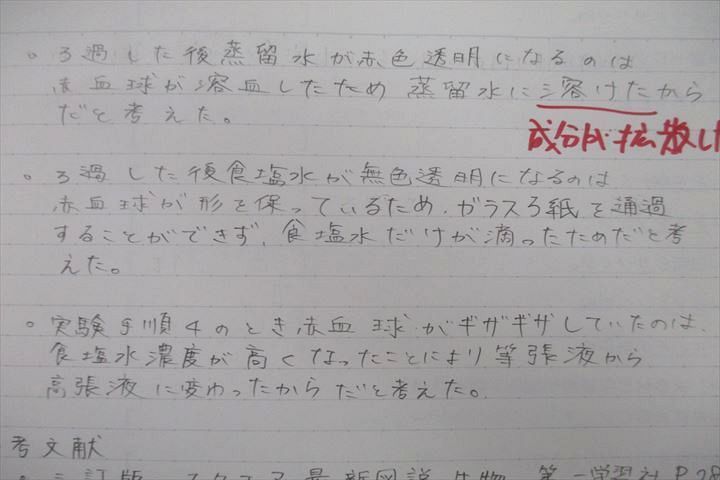 。ろ過した後蒸留水が赤色透明になるのは
赤血球が溶血したため 蒸留水に溶けたから
だと考えた。
成分が拡散した
。ろ過した後食塩水が無色透明になるのは
赤血球が形を保っているため、ガラスろ紙を通過
することができず、食塩水だけが滴ったためだと考
えた。
。実験手順4のとき赤血球がギザギザしていたのは、
食塩水濃度が高くなったことにより等張液から
高張液に変わったからだと考えた。
考文献
三訂版 スクエア最新図説生物 第一学習社 P.28